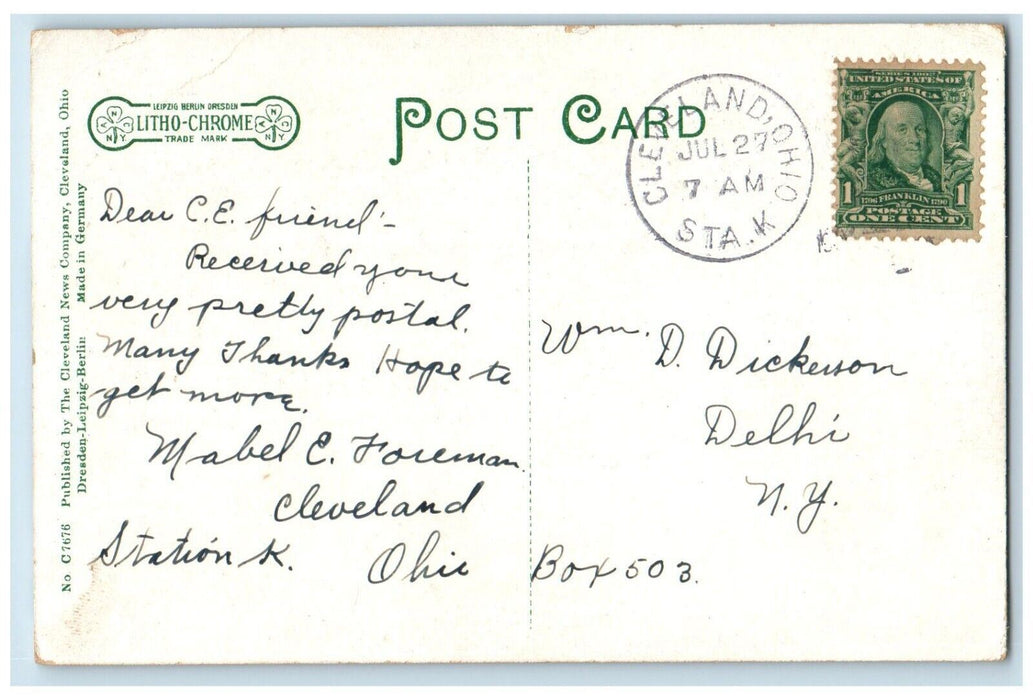 No C7676 Published by The Cleveland News Company, Cleveland, Ohio
Dresden-Leipzig-Berlin Made in Germany
LEIPZIG BERLIN DRESDEN
LITHO-CHROME
TRADE MARK
A N C
N.Y.
A N C
N.Y.
POST CARD
CLEVELAND, OHIO
JUL 27
7 AM
STA. K
SERIES 1902
UNITED STATES OF
AMERICA
1 1
1706 FRANKLIN 1790
POSTAGE
ONE CENT
Dear C.E. friend:-
Received your
very pretty postal.
Many Thanks Hope to
get more.
Mabel E. Foreman.
Cleveland
Station K. Ohio
Wm. D. Dickerson
Delhi
N.Y.
Box 503.